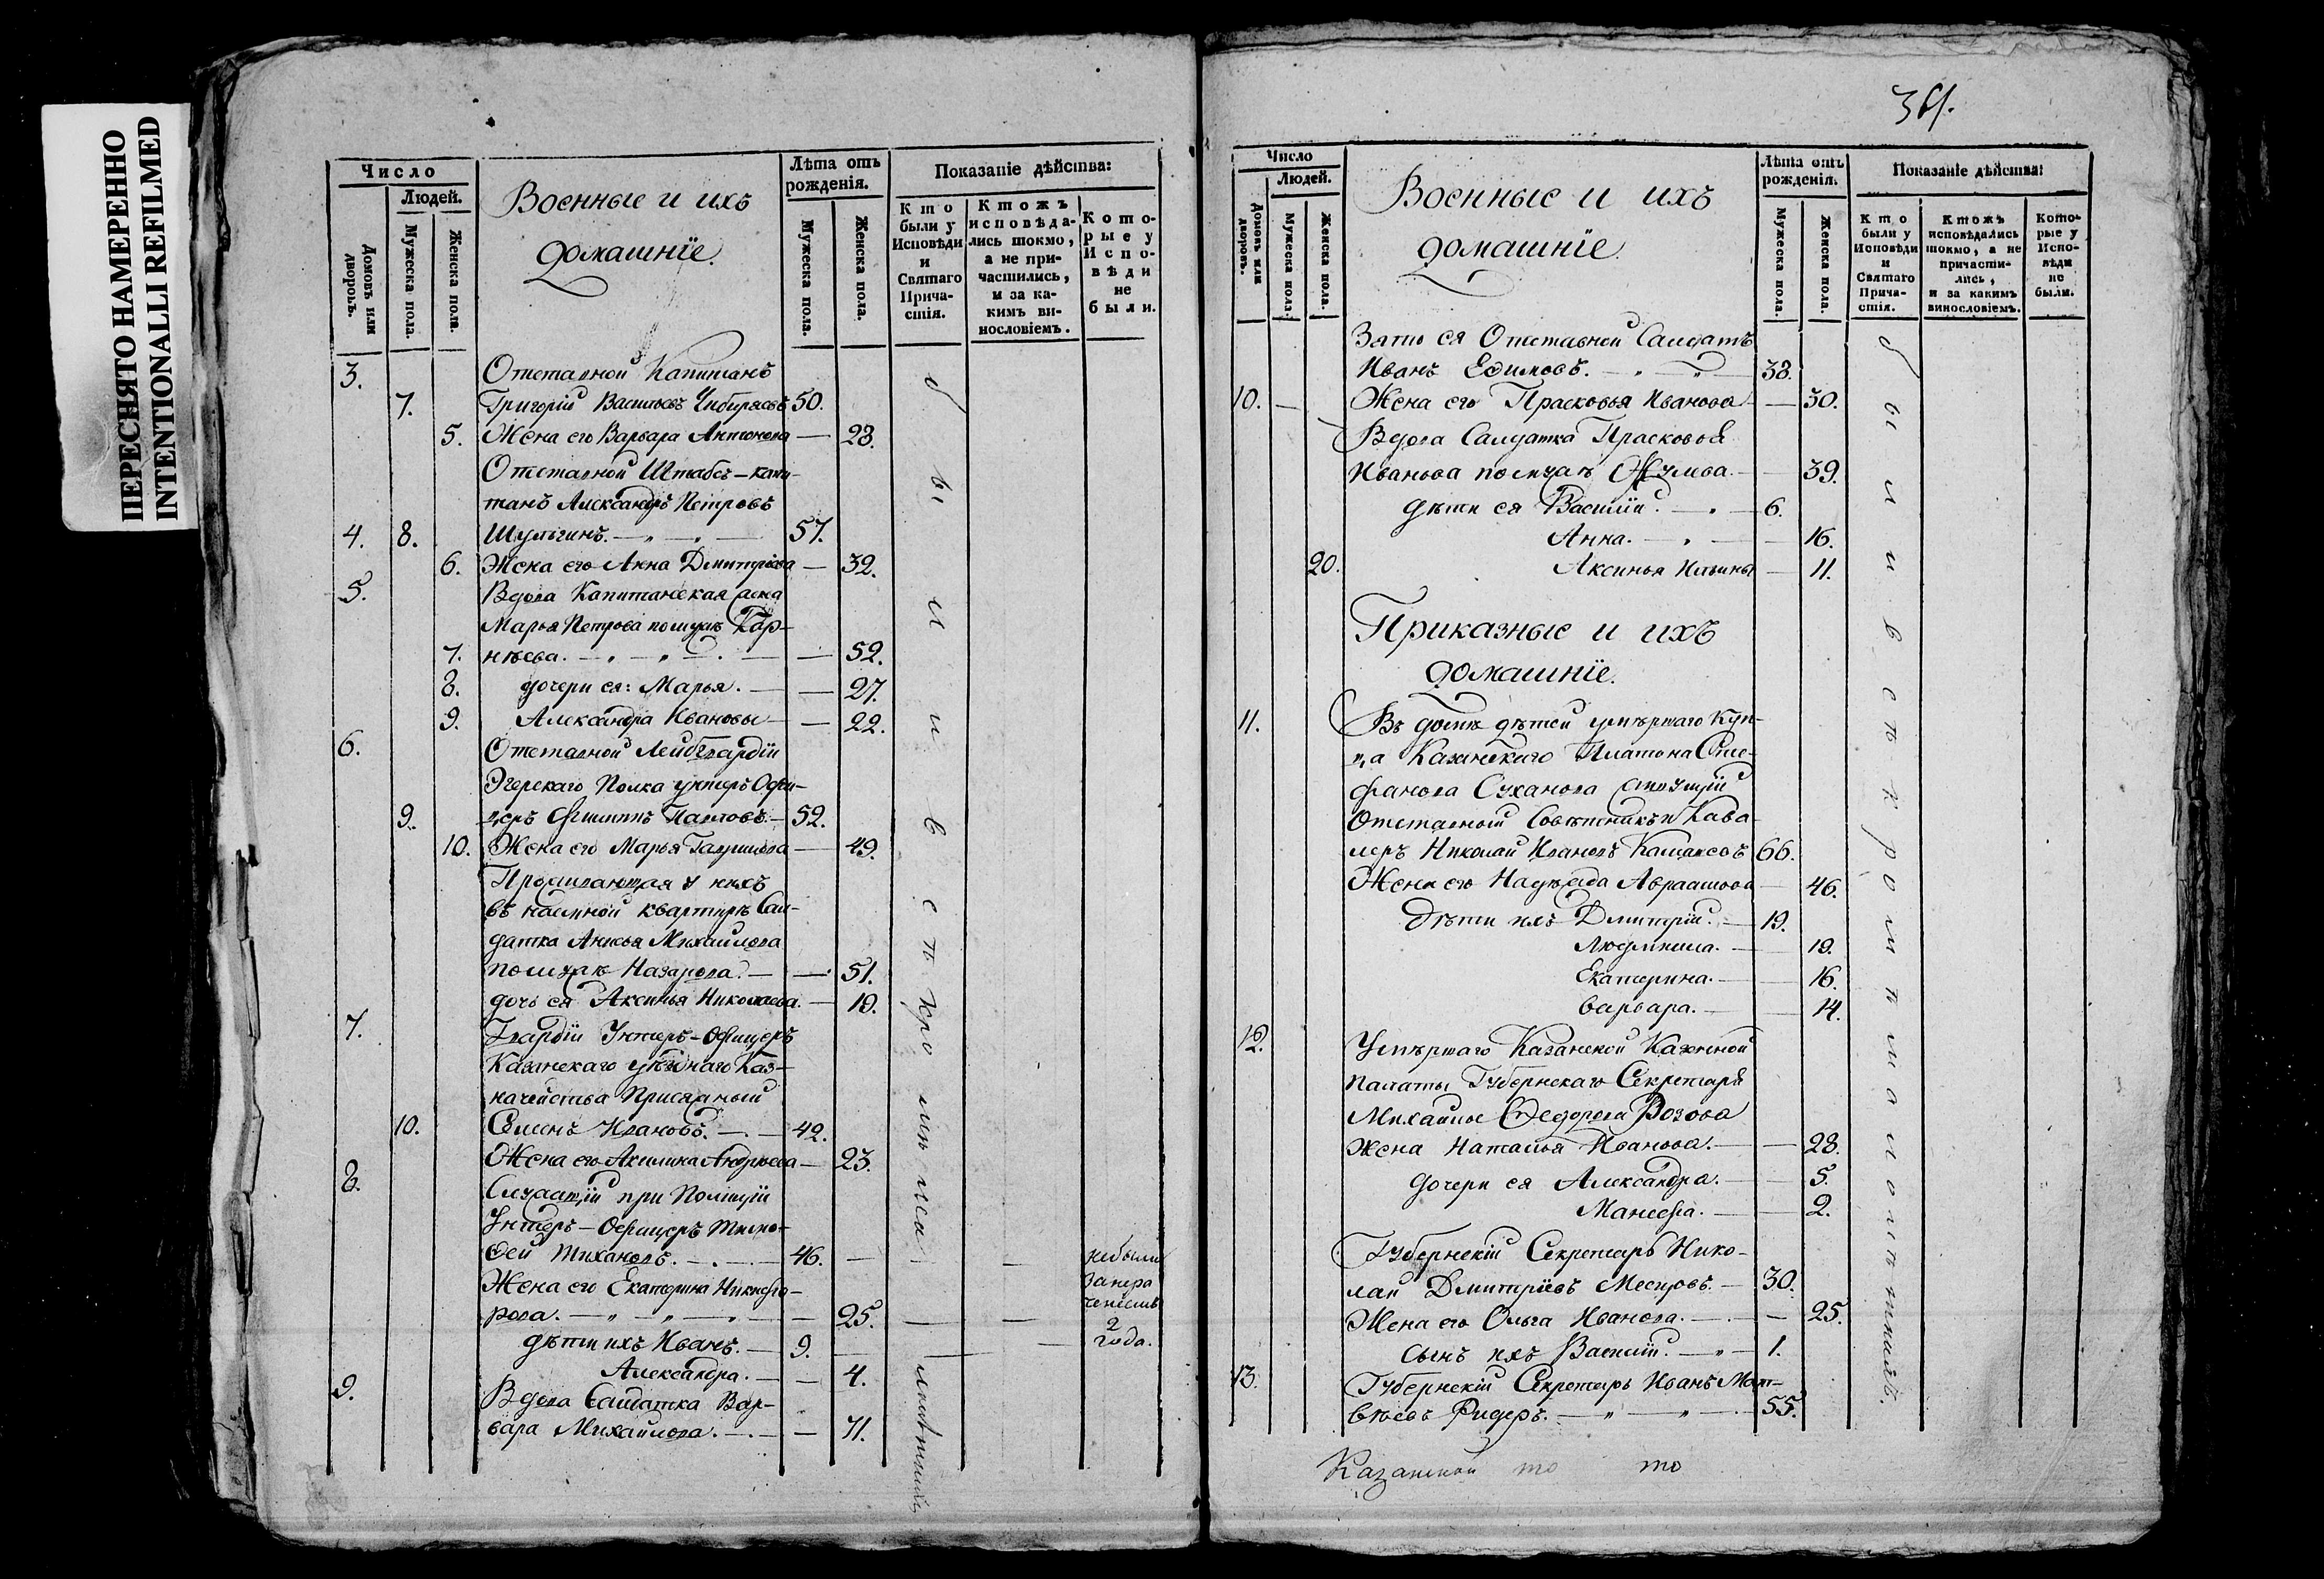 ПЕРЕСНЯТО НАМЕРЕННО
INTENTIONALLI REFILMED
Число
Людей.
Домовъ или дворовъ.
Мужеска пола.
Женска пола.
Военные и ихъ
домашніе.
Лѣта отъ
рожденія.
Мужеска пола.
Женска пола.
Показаніе дѣйства:
Кто
были у
Исповѣди
и
Святаго
Прича-
стія.
Ктожъ
исповѣда-
лись токмо,
а не при-
частились,
и за ка-
кимъ ви-
нословіемъ.
Кото-
рые у
Испо-
вѣди
не
были.
3. Отставной Капитанъ
7. Григорій Васильевъ 50.
5. Жена его Варвара Антонова — 28.
Отставной Штабсъ-капи-
танъ Александръ Петровъ
4. 8. Шульгинъ. — 57.
6. Жена его Анна Дмитріева — 32.
5. Вдова Капитанская жена
Марья Петрова по мужѣ Кор-
7. нѣева. — 52.
8. дочери ея: Марья. — 27.
9. Александра Ивановы — 22.
6. Отставной Лейбгвардіи
Эгерскаго Полка унтеръ Офи-
9. церъ Филиппъ Павловъ. — 52.
10. Жена его Марья Гаврилова — 49.
Проживающая у нихъ
въ наемной квартирѣ Сал-
датка Анисья Михайлова
по мужѣ Назарова. — 51.
дочь ея Аксинья Николаева. — 19.
7. Гвардіи Унтеръ-Офицеръ
Казанскаго уѣзднаго Каз-
начейства Присяжный
10. Семенъ Ивановъ. — 42.
Жена его Акилина Андреева — 23.
8. Служащій при Полиціи
Унтеръ-Офицеръ Тимо-
фей Тихановъ. — 46. —
Жена его Екатерина Никифо-
рова. — 25. —
дѣти ихъ Иванъ. — 9. —
Александра. — 4.
9. Вдова Салдатка Вар-
вара Михайлова. — 71.
были въ
небыли
2
года.
Число
Людей.
Домовъ или дворовъ.
Мужеска пола.
Женска пола.
Военные и ихъ
домашніе.
Лѣта отъ
рожденія.
Мужеска пола.
Женска пола.
Показаніе дѣйства:
Кто
были у
Исповѣди
и
Святаго
Прича-
стія.
Ктожъ
исповѣдались
токмо, а не
причасти-
лись,
и за какимъ
винословіемъ.
Кото-
рые у
Испо-
вѣди
не
были.
Зять ея Отставной Салдатъ
Иванъ Ефимовъ. — 38.
10. — Жена его Прасковья Иванова — 30.
Вдова Салдатка Прасковья
Иванова по мужѣ — 39.
дѣти ея Василій. — 6.
Анна. — 16.
20. Аксинья Ильины — 11.
Приказные и ихъ
домашніе.
11. Въ домѣ дѣтей умершаго Куп-
ца Казанскаго Платона Сте-
фанова Суханова
Отставной Совѣтникъ и Кава-
леръ Николай Ивановъ 66.
Жена его Надежда Авраамова — 46.
Дѣти ихъ Дмитрій. — 19.
Людмила. — 19.
Екатерина. — 16.
Варвара. — 14.
12. Умершаго Казанской Казенной
палаты Губернскаго Секретаря
Михайлы Федорова Розова
жена Наталья Иванова. — 28.
дочери ея Александра. — 5.
Манефа. — 2.
Губернскій Секретарь Нико-
лай Дмитріевъ — 30.
Жена его Ольга Иванова. — 25.
Сынъ ихъ Василій. — 1.
13. Губернскій Секретарь Иванъ Мат-
вѣевъ Ридеръ. — 55.
были въ
Казанской то то